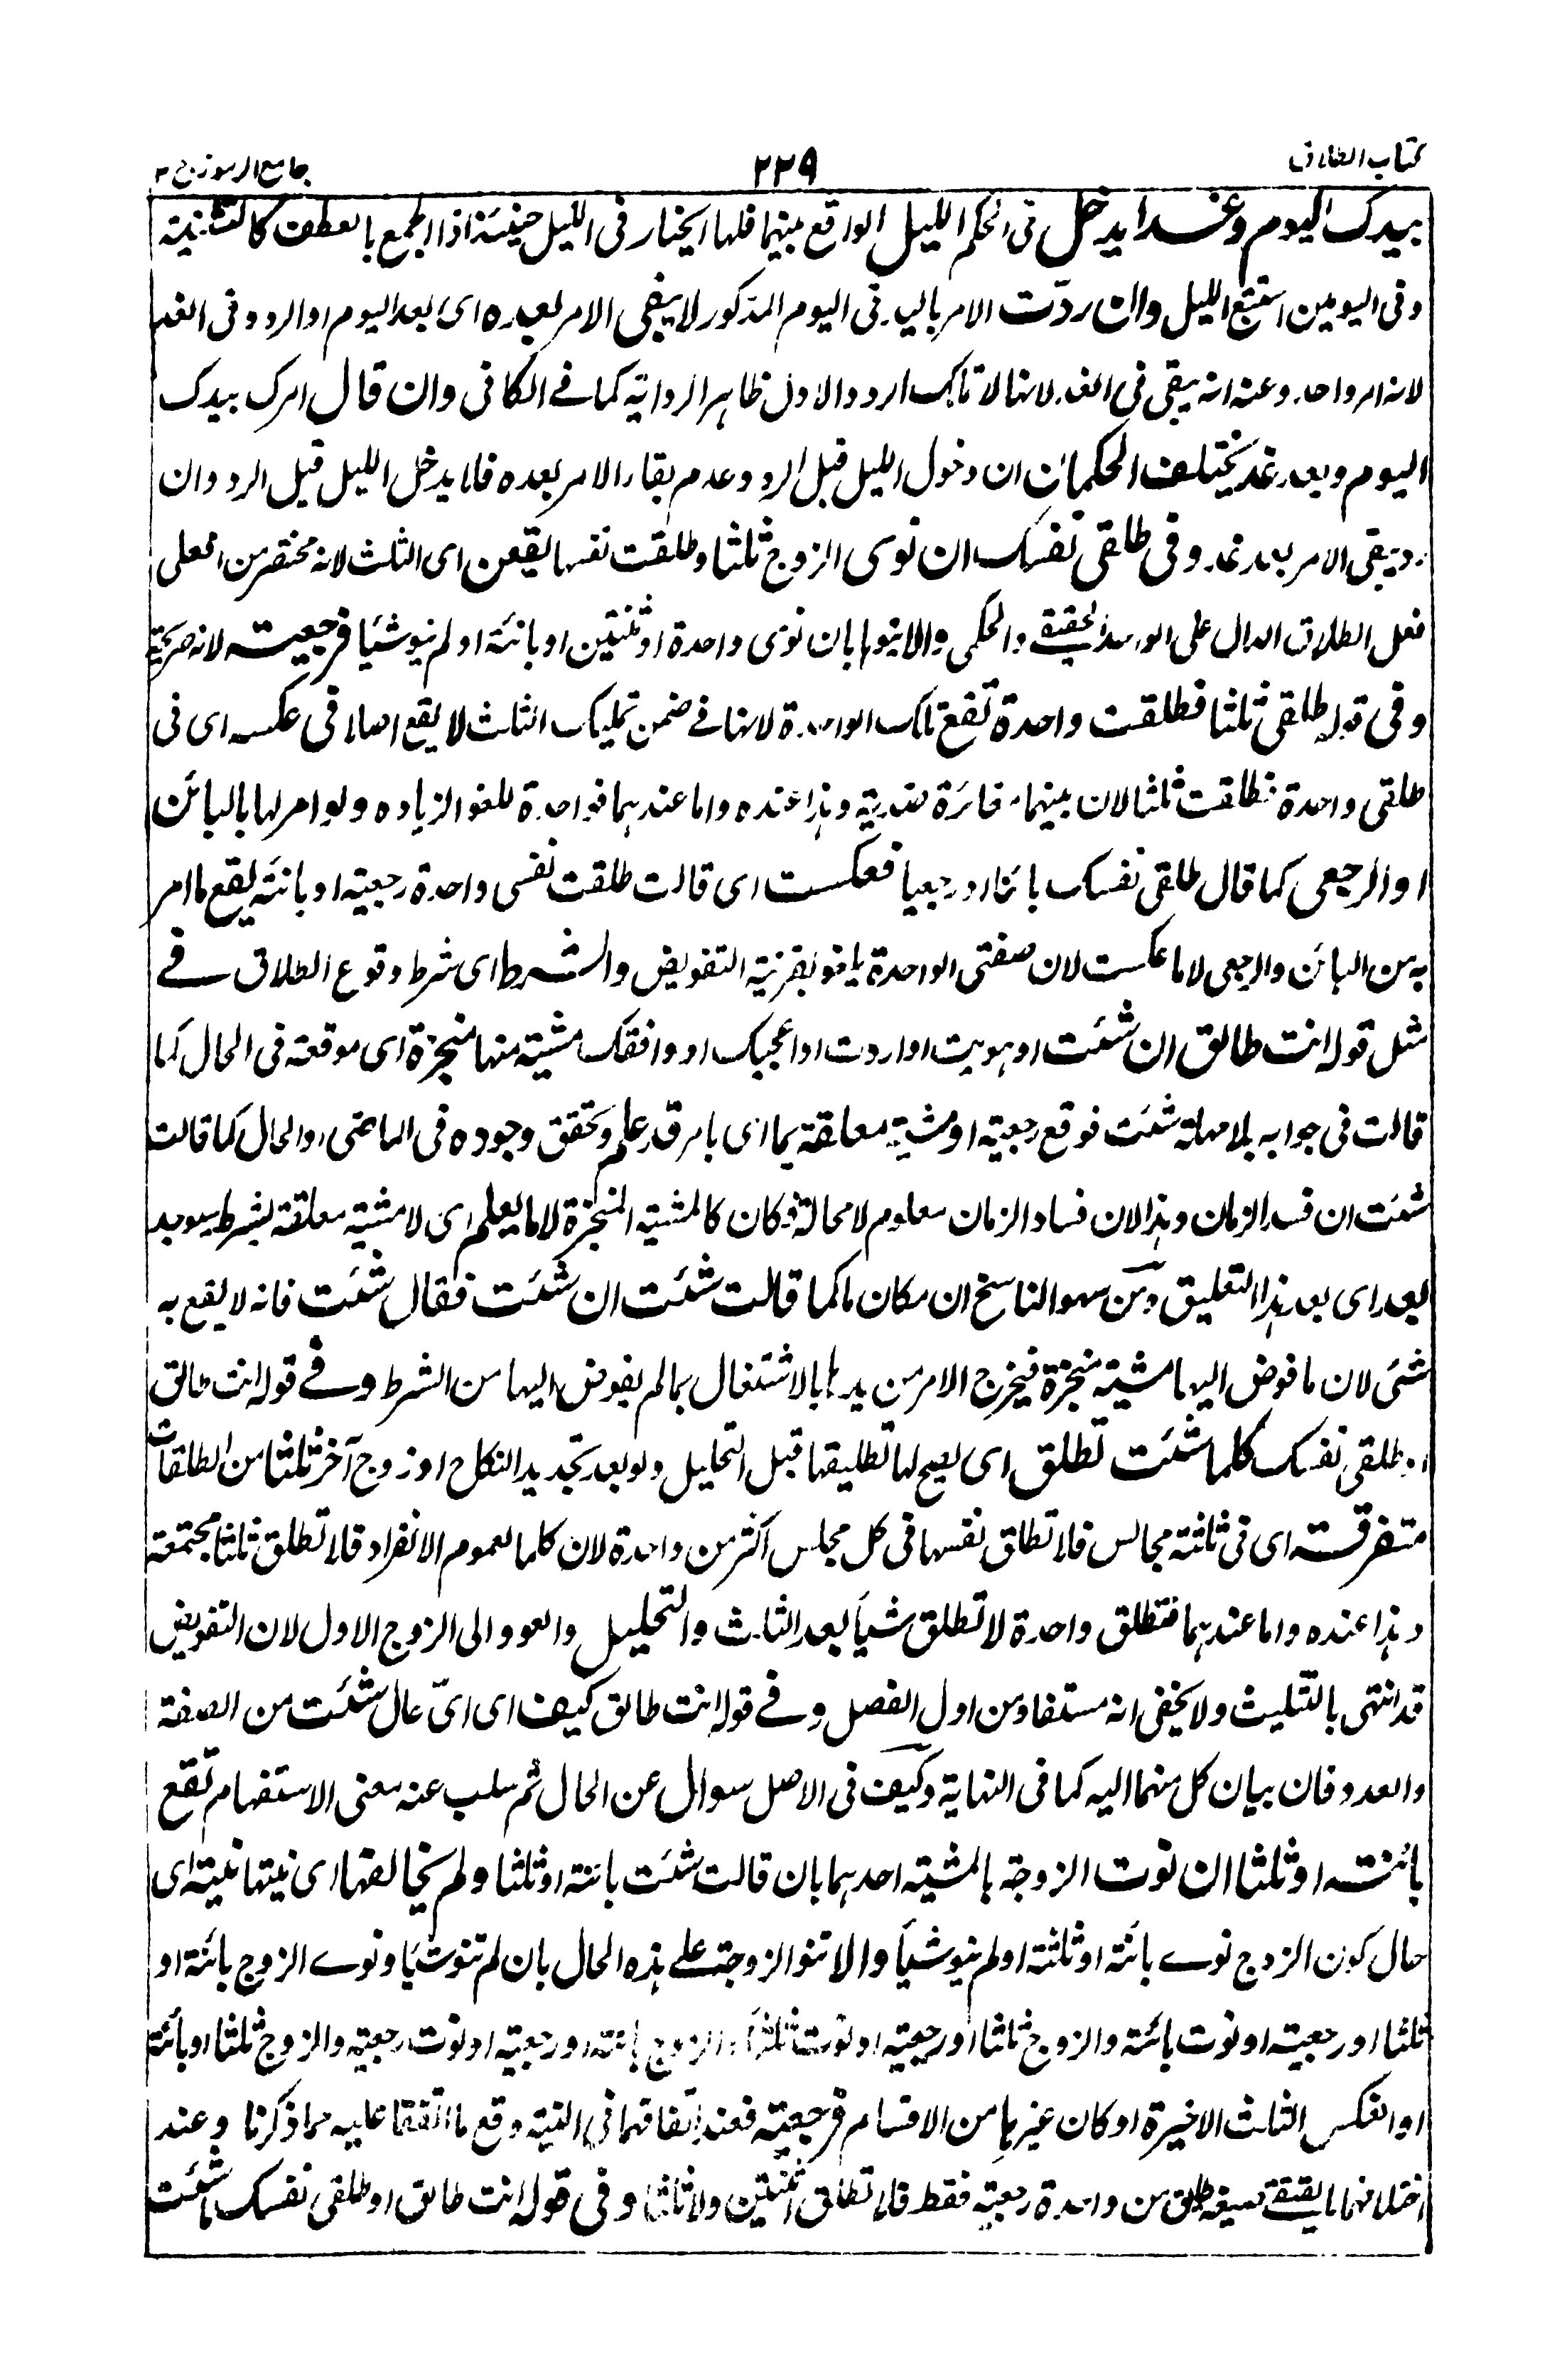 كتاب الطلاق
٢٢٩
جامع الرموز ج ٢
بيدك اليوم وغدا يدخل في الحكم الليل الواقع بينهما فلها الخيار في الليل حينئذ اذ الجمع بالعطف كالتثنية
وفي اليومين استتبع الليل وان ردّت الامر باليد في اليوم المذكور لا يبقى الامر بعده اى بعد اليوم او الرد وفي الغد
لانه امر واحد وعنه انه يبقى في الغد لانها لا تملك الرد والاول ظاهر الرواية كما في الكافي وان قال امرك بيدك
اليوم وبعد غد يختلف الحكمان ان دخول الليل قبل الرد وعدم بقاء الامر بعده فلا يدخل الليل قبل الرد وان
رد يبقى الامر بعد غد وفي طلقي نفسك ان نوى الزوج ثلثا وطلقت نفسها يقعن اى الثلث لانه مختصر من افعلى
فعل الطلاق الدال على الواحد الحقيقے والحكمي والا ينوها بان نوى واحدة او ثنتين او بائنة او لم ينو شيئا فرجعيت لانه صريح
وفي قوله طلقي ثلثا فطلقت واحدة تقع تلك الواحدة لانها في ضمن تمليك الثلث لا يقع اصلا في عكسه اى في
طلقي واحدة فطلقت ثلثا لان بينهما مغائرة ضدية وهذا عنده واما عندهما فواحدة للغو الزياده ولو امر لها بالبائن
او الرجعي كما قال طلقي نفسك بائنا او رجعيا فعكست اى قالت طلقت نفسى واحدة رجعية او بائنة يقع ما امر
به من البائن والرجعى لا ما عكست لان صفتى الواحدة يلغو بقرينة التفويض والشرط اى شرط وقوع الطلاق في
مثل قوله انت طالق ان شئت او هويت او اردت او اعجبك او وافقك مشية منها منجزة اى موقعة في الحال كما
قالت في جوابه بلا مهلة شئت فوقع رجعية او مشية معلقة بما اى بامر قد علم وتحقق وجوده في الماضى او الحال كما قالت
شئت ان فسد الزمان وهذا لان فساد الزمان معلوم لا محالة فكان كالمشية المنجزة لا ما يعلم اى لا مشية معلقة بشرط سيوجد
بعد اى بعد هذا التعليق ومن سهو الناسخ ان مكان ما كما قالت شئت ان شئت فقال شئت فانه لا يقع به
شئ لان ما فوض اليها مشية منجزة فيخرج الامر من يدها بالاشتغال بما لم يفوض اليها من الشرط وفي قوله انت طالق
او طلقي نفسك كلما شئت تطلق اى يصح لها تطليقها قبل التحليل ولو بعد تجديد النكاح او زوج آخر ثلثا من الطلقات
متفرقة اى في ثلثة مجالس فلا تطلق نفسها في كل مجلس اكثر من واحدة لان كلما لعموم الانفراد فلا تطلق ثلثا مجتمعة
وهذا عنده واما عندهما فتطلق واحدة لا تطلق شيأ بعد الثلث والتحليل والعود الى الزوج الاول لان التفويض
قد انتهى بالتثليث ولا يخفى انه مستفاد من اول الفصل وفي قوله انت طالق كيف اى اىّ حال شئت من الصفة
والعدد فان بيان كل منهما اليه كما في النهاية وكيف في الاصل سوال عن الحال ثم سلب عنه معنى الاستفهام تقع
بائنة او ثلثا ان نوت الزوجة بالمشية احدهما بان قالت شئت بائنة او ثلثا ولم يخالفها اى نيتها نيته اى
حال كون الزوج نوے بائنة او ثلثة او لم ينو شيأ والا تنو الزوجة على هذه الحال بان لم تنو شيأ ونوے الزوج بائنة او
ثلثا او رجعية او نوت بائنة والزوج ثلثا او رجعية او نوت ثلثا والزوج بائنة او رجعية او نوت رجعية والزوج ثلثا او بائنة
او انعكس الثلث الاخيرة او كان غيرها من الاقسام فرجعية فعند اتفاقهما في النية وقع ما اتفقا عليه مما ذكرنا وعند
اختلافهما ما يقتضے صيغة طلق من واحدة رجعية فقط فلا تطلق اثنتين ولا ثلثا وفي قوله انت طالق او طلقي نفسك ما شئت